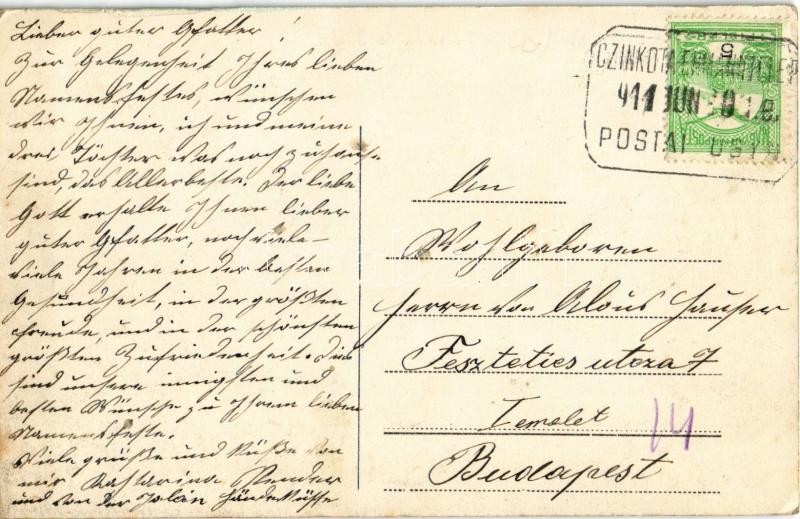 Lieber guter Gfatter!
Zur Gelegenheit Ihres lieben
Namensfestes, wünschen
wir Ihnen, ich und meine
drei Töchter was noch zuhause
sind, das Allerbeste. Der liebe
Gott erhalte Ihnen lieber
guter Gfatter, noch viele-
viele Jahren in der besten
Gesundheit, in der größten
Freude, und in der schönsten
größten Zufriedenheit. Dies
sind unsere innigsten und
besten Wünsche zu Ihrem lieben
Namensfeste.
Viele grüße und Küße von
mir Katharina
und von der Jolán Händeküsse
CZINKOTA
911 JUN
POSTAI
5
An
Wohlgeboren
Herrn von Alois Hauser
Fesztetics utcza 7
I emelet
14
Budapest